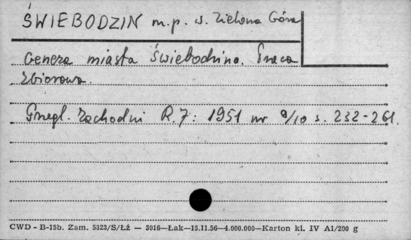 ŚWIEBODZIN m.p. w. Zielona Góra
Geneza miasta Świebodzina. Praca
zbiorowa.
Przegl. Zachodni R.7: 1951 nr 9/10 s. 232-261.
CWD - B-15b. Zam. 5323/S/Łż — 3016—Łak—15.11.56—4.000.000—Karton kl. IV A1/200 g